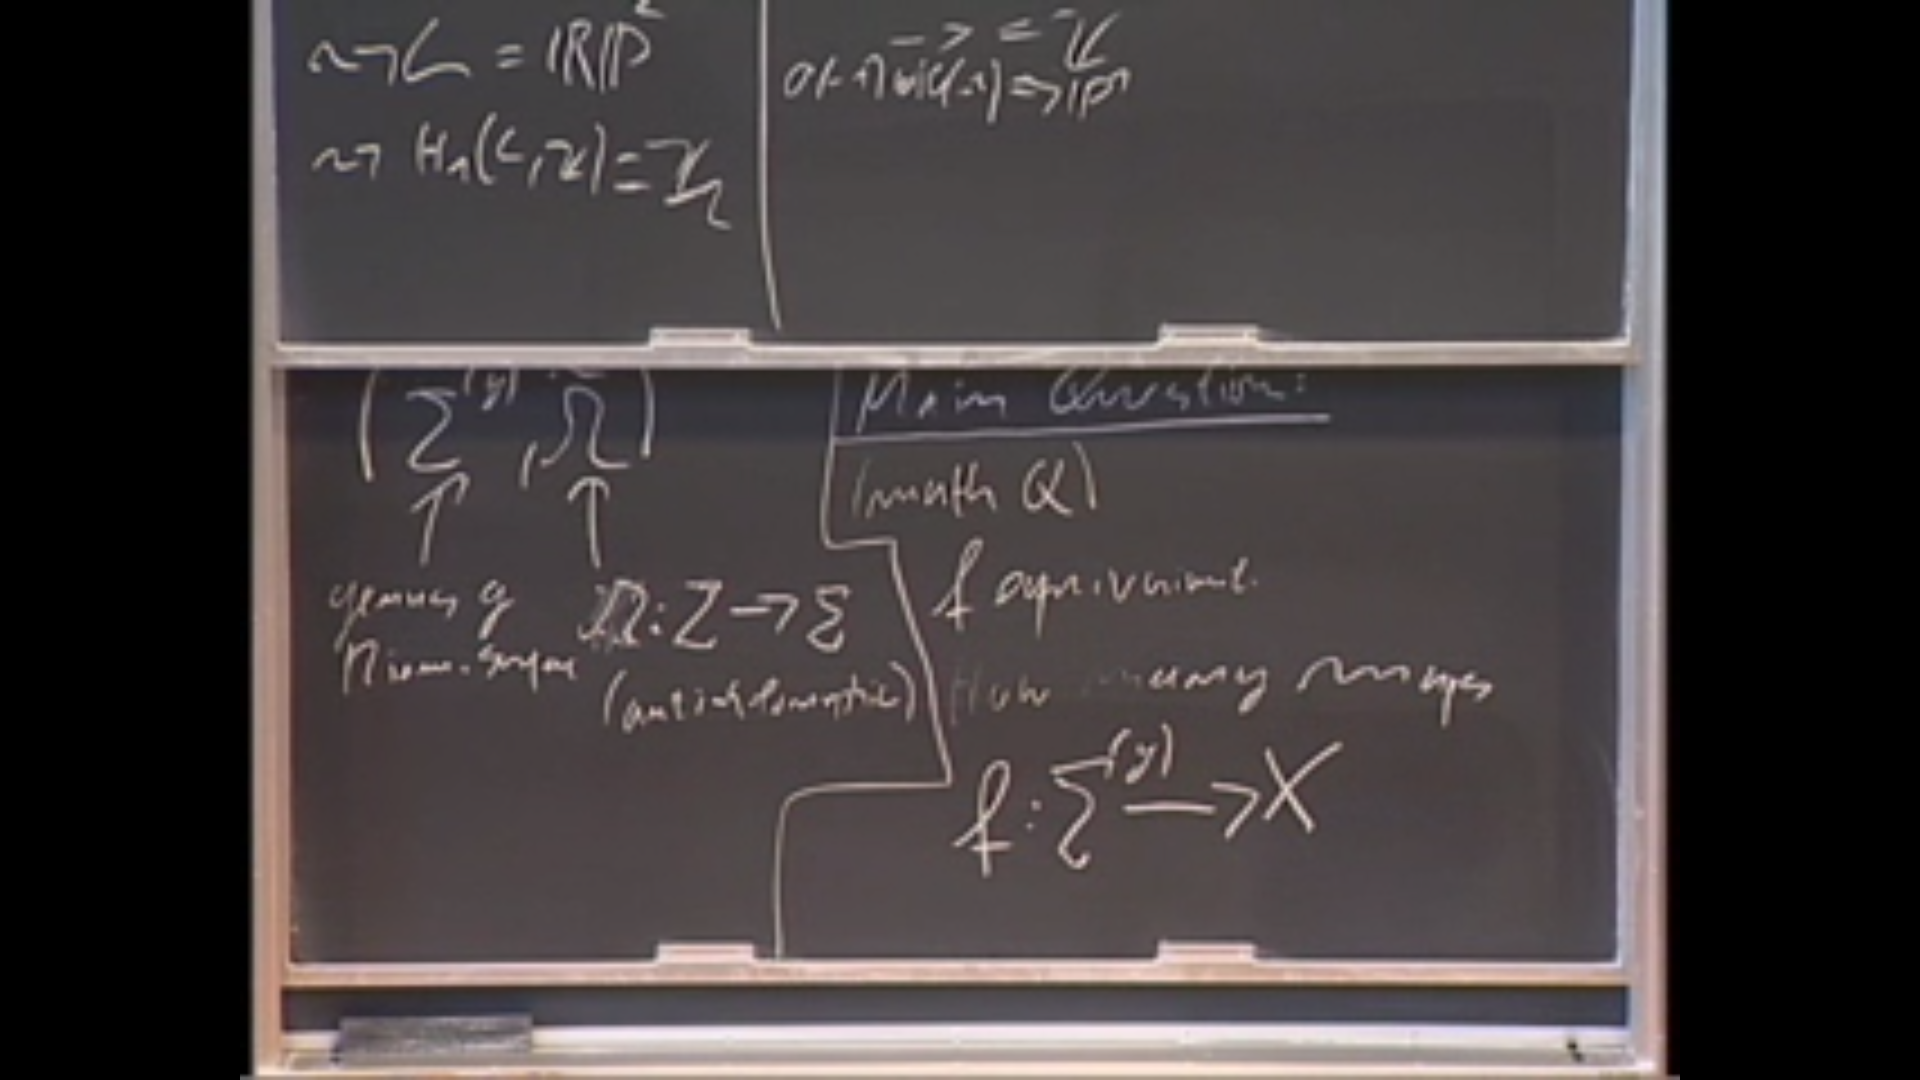 ⇝ L = ℝℙ²
⇝ H₁(L,ℤ) = ℤ₂
(Σ^(g), Ω)
↑ ↑
genus g Ω: Σ → Σ
Riem. Surface (antiholomorphic)
Main Question:
(math Q)
f equivariant.
How many maps
f: Σ^(g) → X